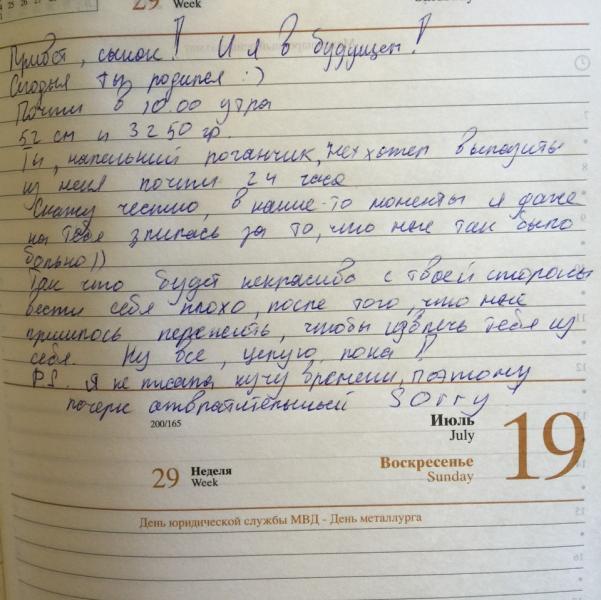 29 Week
Привет, сынок! И я в будущем!
Сегодня ты родился :)
Почти в 10.00 утра
52 см и 3250 гр.
Ты, маленький поганчик, не хотел вылазить
из меня почти 24 часа
Скажу честно, в какие-то моменты я даже
на тебя злилась за то, что мне так было
больно))
Так что будет некрасиво с твоей стороны
вести себя плохо, после того, что мне
пришлось пережить, чтобы извлечь тебя из
себя. Ну все, целую, пока!
P.S. Я не писала кучу времени, поэтому
почерк отвратительный Sorry
200/165
Июль
July
19
29 Неделя
Week
Воскресенье
Sunday
День юридической службы МВД - День металлурга